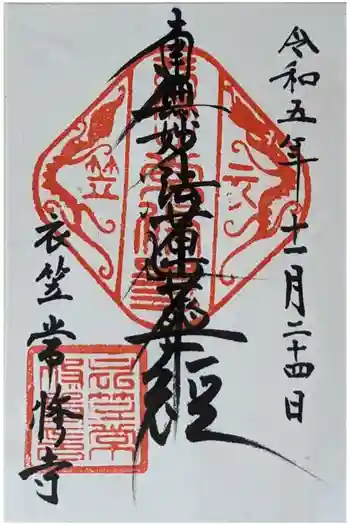 令和五年十一月二十四日
南無妙法蓮華経
衣笠
常修寺
衣
笠